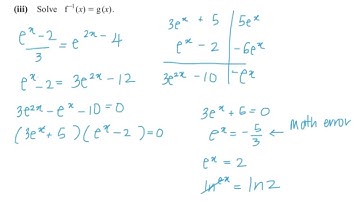 (iii) Solve f⁻¹(x) = g(x).
(eˣ - 2)/3 = e^(2x - 4)
eˣ - 2 = 3e²ˣ - 12
3e²ˣ - eˣ - 10 = 0
(3eˣ + 5)(eˣ - 2) = 0
3eˣ + 5 | 5eˣ
eˣ - 2 | -6eˣ
3e²ˣ - 10 | -eˣ
3eˣ + 5 = 0
eˣ = -5/3 ← Math error
eˣ = 2
ln eˣ = ln 2